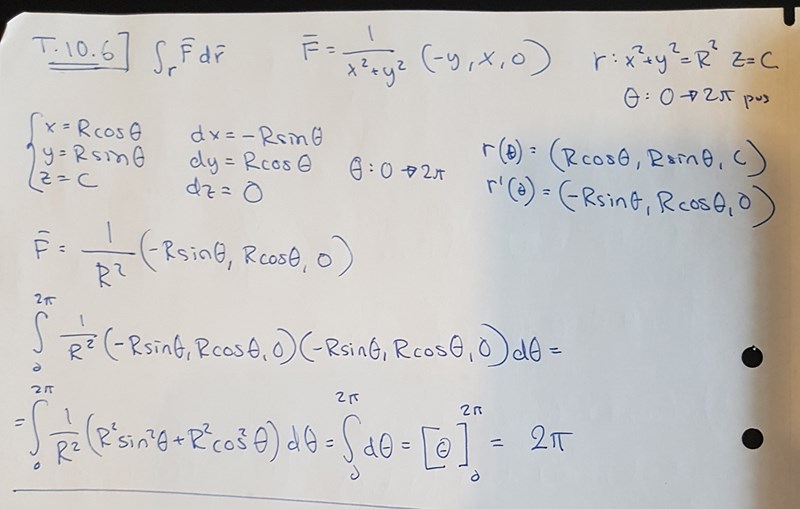 T.10.6] ∫_r F̄ dr̄   F̄ = 1/(x²+y²) (-y, x, 0)   r: x²+y²=R² z=C
θ: 0→2π pos
x = Rcosθ   dx = -Rsinθ
y = Rsinθ   dy = Rcosθ   θ: 0→2π   r(θ) = (Rcosθ, Rsinθ, C)
z = C   dz = 0   r'(θ) = (-Rsinθ, Rcosθ, 0)
F̄ = 1/R² (-Rsinθ, Rcosθ, 0)
∫₀^2π 1/R² (-Rsinθ, Rcosθ, 0)(-Rsinθ, Rcosθ, 0)dθ =
= ∫₀^2π 1/R² (R²sin²θ + R²cos²θ) dθ = ∫₀^2π dθ = [θ]₀^2π = 2π